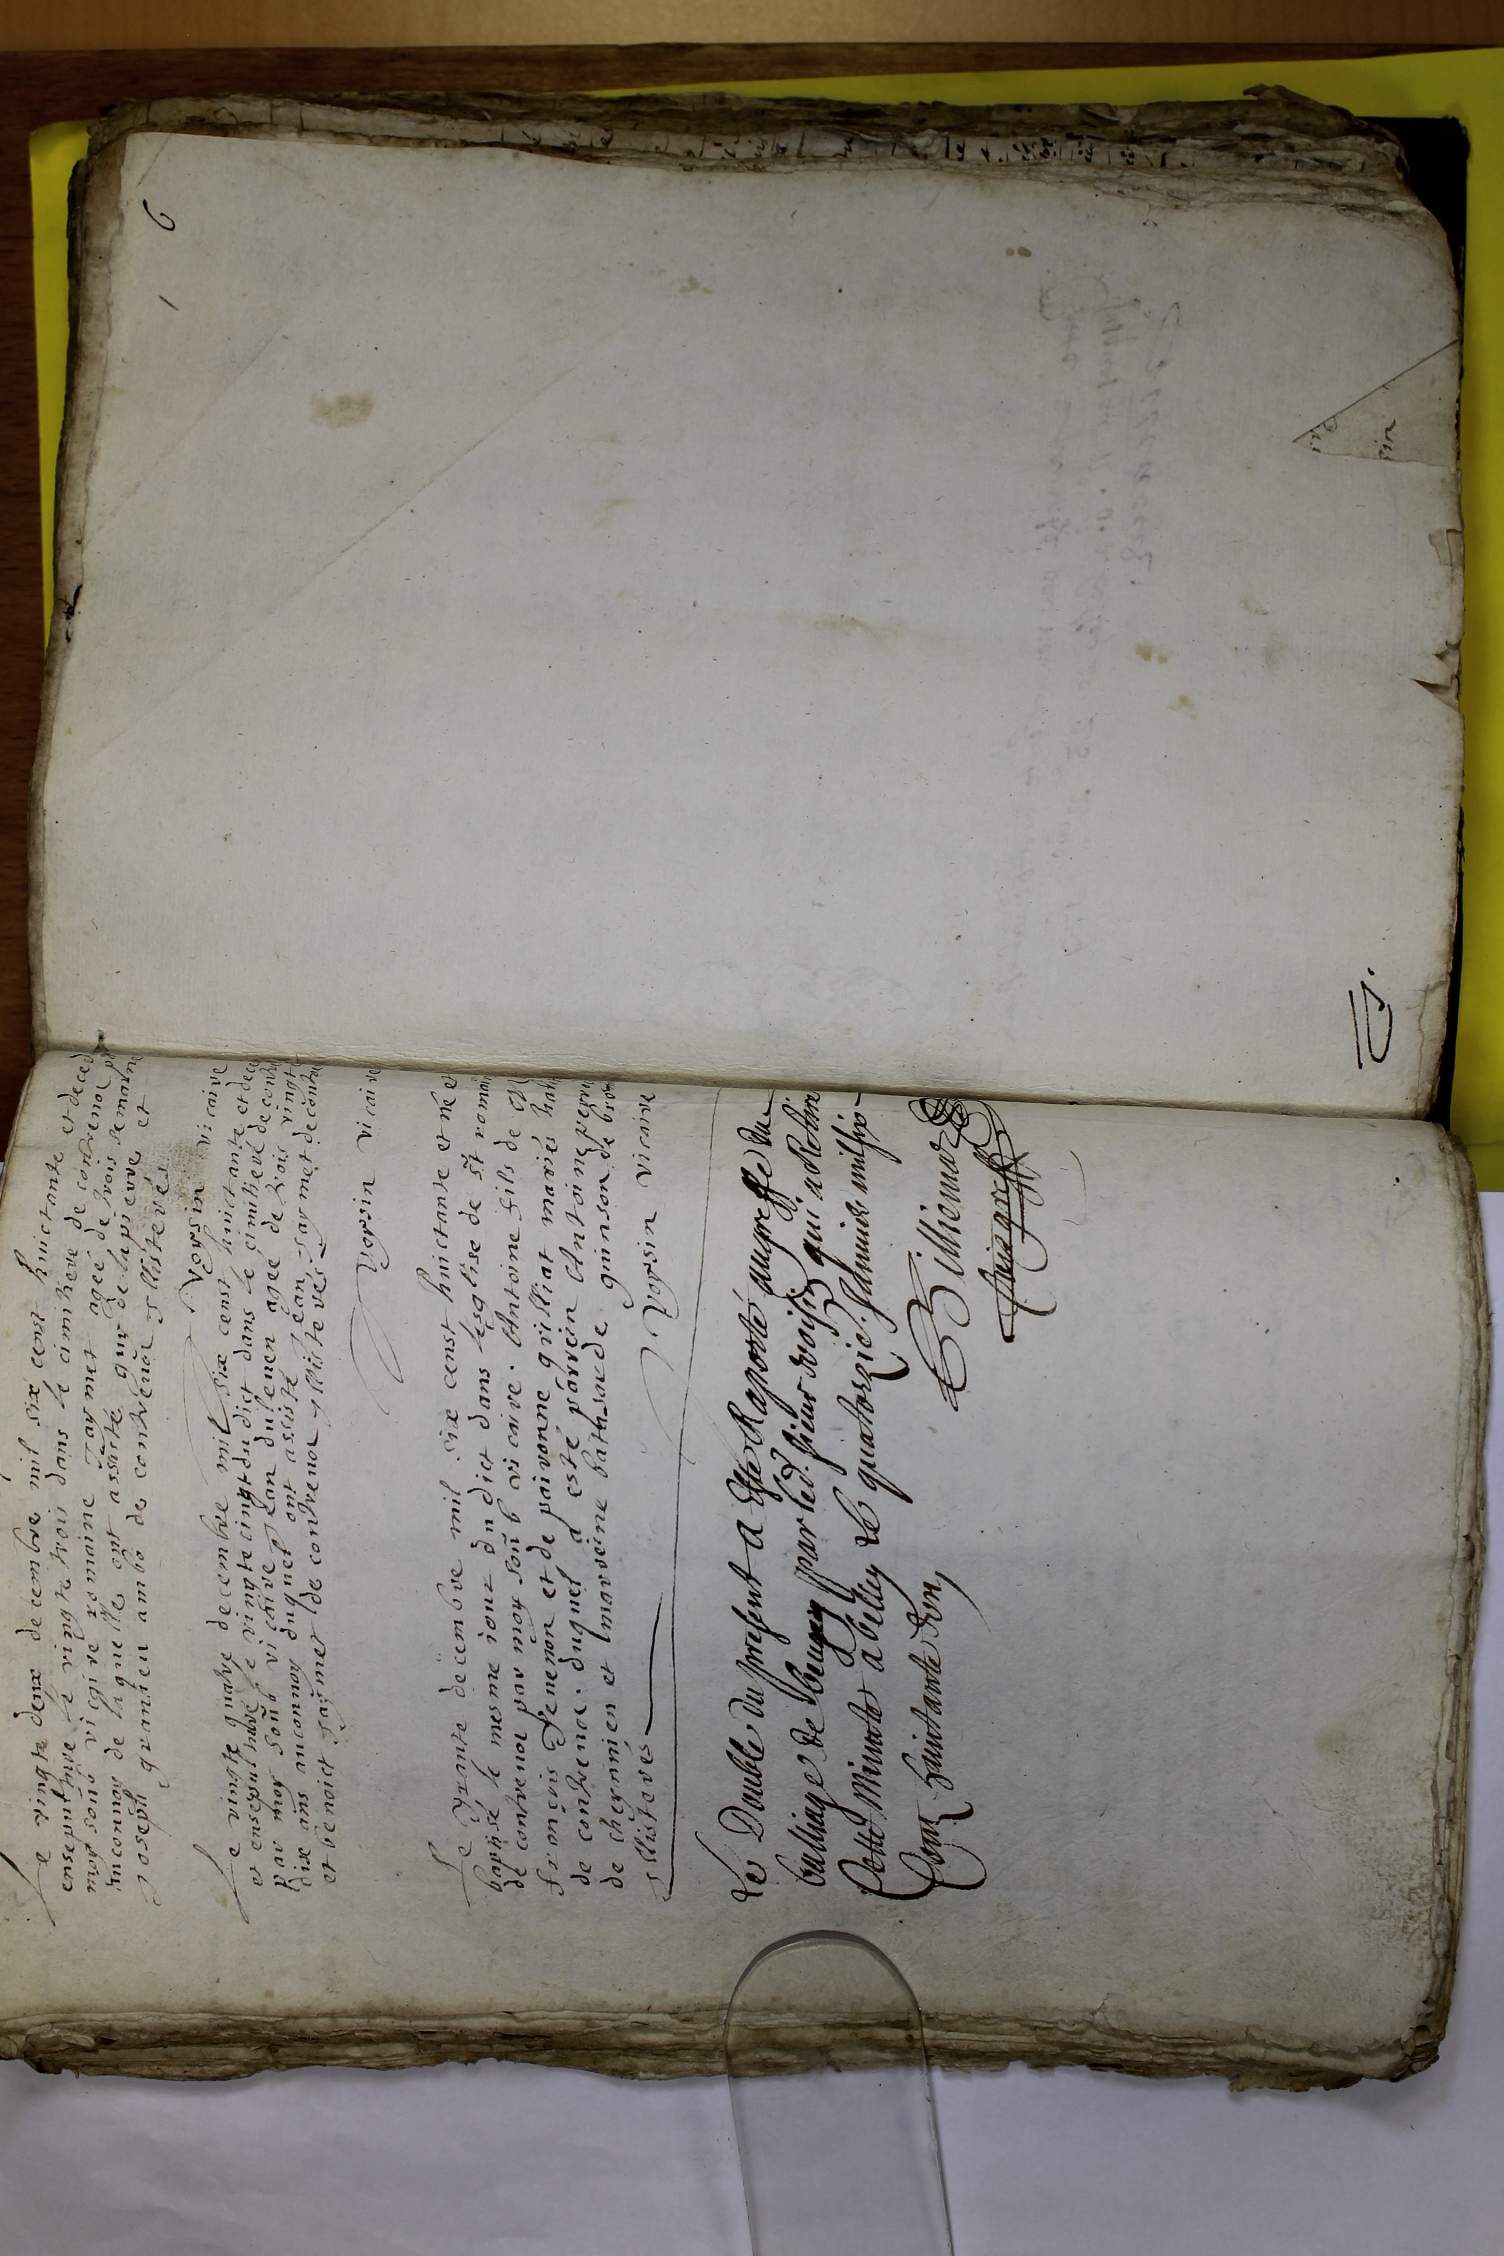 Le vingte deux decembre mil six cent huictante et deced
ensepulture le vingte trois dans le cimitiere de contrevoz
moy soub vicaire romaine Jaymet agee de trois semaine
Anconnay de laquelle ont assisté guy delapierre et
Joseph gramien ambo de contrevoz illisterés
Voysin vicaire
Le vingte quatre decembre mil six censt huictante et dece
et ensepulture le vingte cinq du dict dans le cimitiere de cont
par moy soub vicaire Jean dulenen agee de trois vingt
dix ans anconnay duquel ont assisté Jean Jaymet de contre
et benoict Jaymet de contrevoz illisterés
Voysin vicaire
Le trante decembre mil six censt huictante et né et
baptisé le mesme iour du dict dans lesglise de st romain
de contrevoz par moy soub vicaire. Antoine fils de
françois Jenemon et de paivonne grilliat mariés
de contrevoz. duquel a esté parrein Antoine
de cheynien et marreine bathsarde guinson de
illisterés
Voysin vicaire
Le Double du present a Esté Raporté augreffe du
bailliage de beugey par led. sieur voisin qui a Retiré
Cette Minute a belley le quatorzie. Janvier mil six
Cent huictante Un,
Billiemaz
6